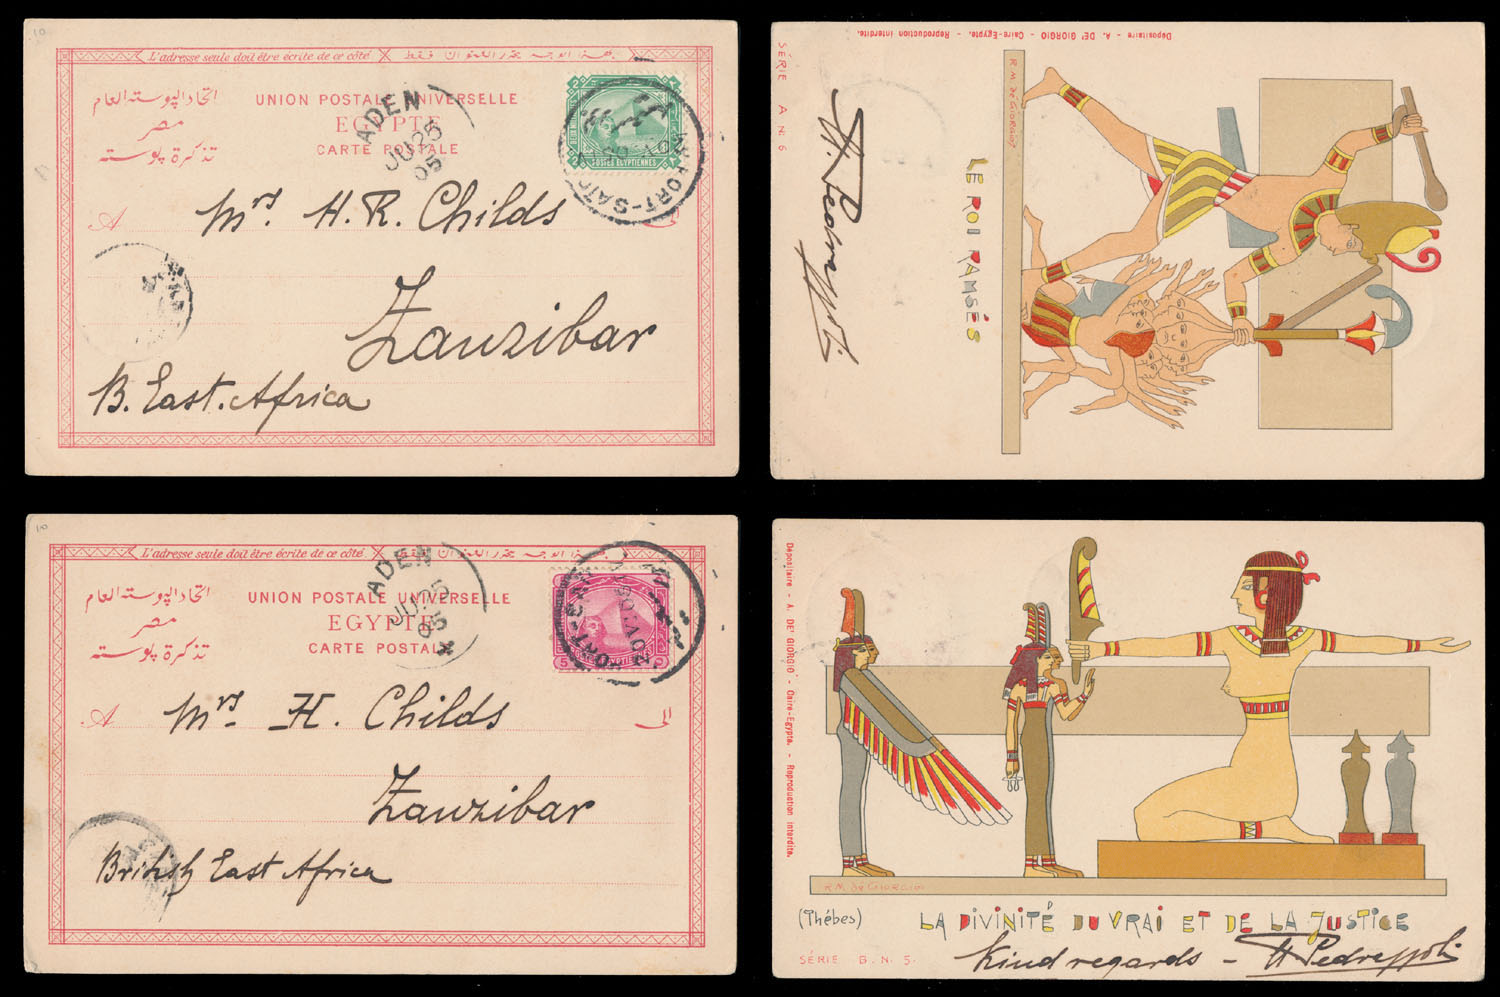 L'adresse seule doit être écrite de ce côté
UNION POSTALE UNIVERSELLE
EGYPTE
CARTE POSTALE
اتحاد البوسته العام
مصر
تذكرة بوسته
ADEN
JU 25
05
2
POSTES EGYPTIENNES
A
Mrs. H. R. Childs
Zanzibar
B. East. Africa
Dépositaire - A. DE' GIORGIO - Caire-Egypte. - Reproduction interdite.
SÉRIE A N. 6
R. M. De GIORGIO
LE ROI RAMSÉS
L'adresse seule doit être écrite de ce côté
UNION POSTALE UNIVERSELLE
EGYPTE
CARTE POSTALE
اتحاد البوسته العام
مصر
تذكرة بوسته
ADEN
JU 25
05
5
A
الى
Mrs. H. Childs
Zanzibar
British East Africa
Dépositaire - A. DE' GIORGIO - Caire-Egypte. - Reproduction interdite.
R. M. De GIORGIO
(Thèbes) LA DIVINITÉ DU VRAI ET DE LA JUSTICE
SÉRIE B. N. 5.
Kind regards -